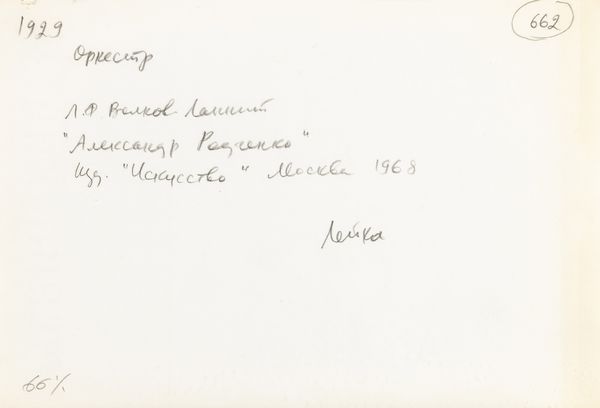 1929
662
Оркестр
Л.Ф Волков-Ланнит
"Александр Родченко"
Изд. "Искусство" Москва 1968
Лейка
66%